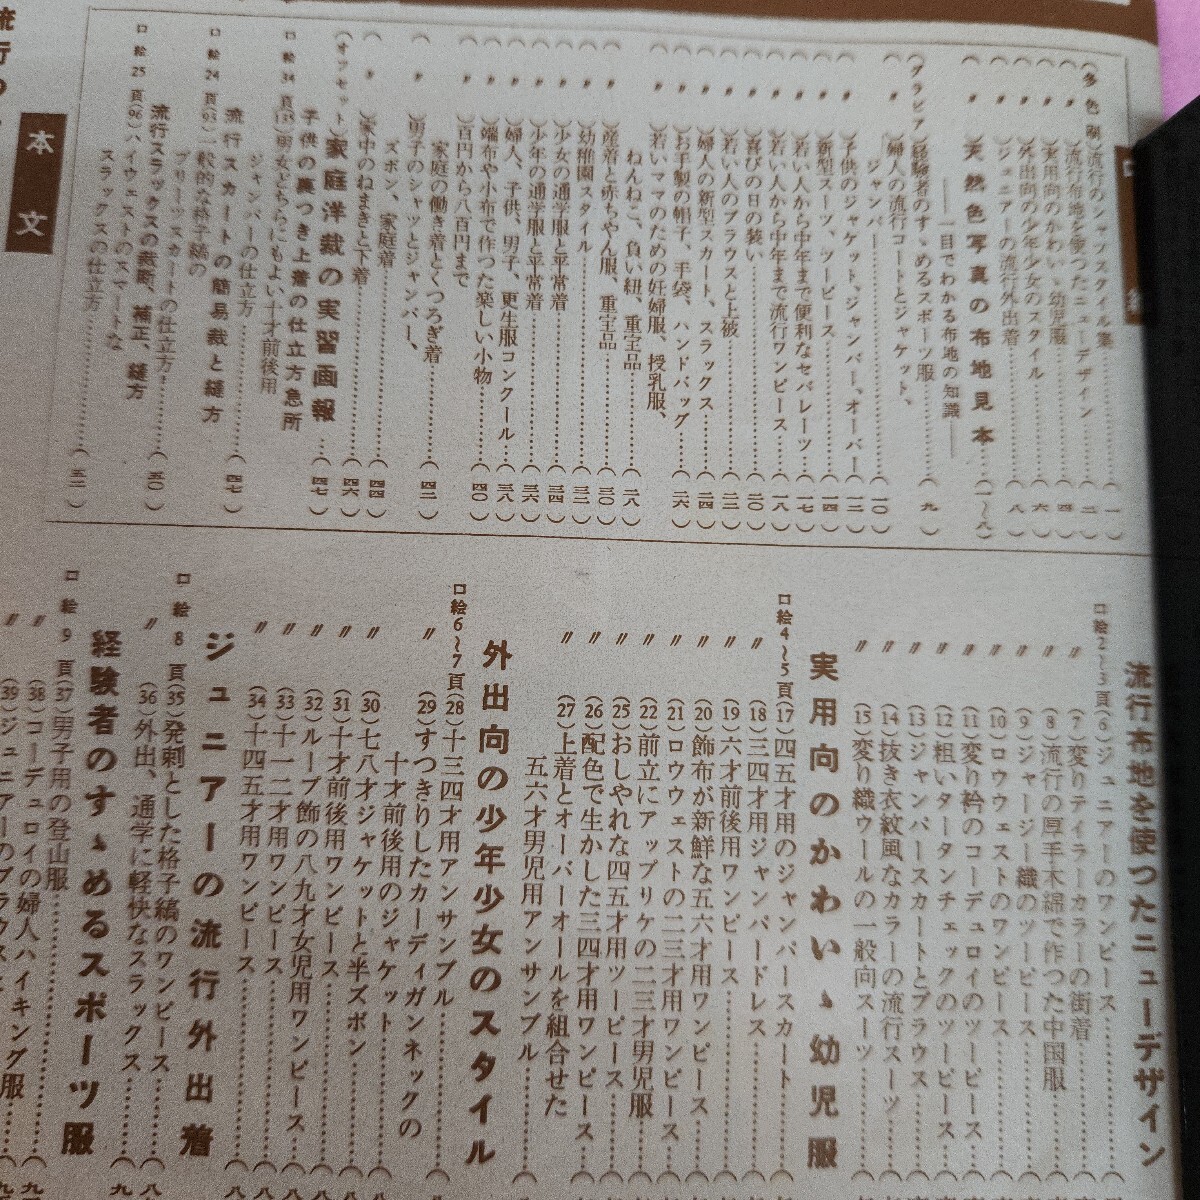 口絵
(多色刷)流行のシャツスタイル集……(一)
〃 流行布地を使つたニューデザイン……(二)
〃 実用向のかわいゝ幼児服……(四)
〃 外出向の少年少女のスタイル……(六)
〃 ジュニアーの流行外出着……(八)
天然色写真の布地見本……(一〜八)
——一目でわかる布地の知識——
(グラビア)経験者のすゝめるスポーツ服……(九)
〃 婦人の流行コートとジャケット、
ジャンパー……(一〇)
〃 子供のジャケット、ジャンパー、オーバー(一二)
〃 新型スーツ、ツーピース……(一四)
〃 若い人から中年まで便利なセパレーツ…(一七)
〃 若い人から中年まで流行ワンピース…(一八)
〃 喜びの日の装い……(二〇)
〃 若い人のブラウスと上被……(二二)
〃 婦人の新型スカート、スラックス……(二四)
〃 お手製の帽子、手袋、ハンドバッグ…(二六)
〃 若いママのための妊婦服、授乳服、
ねんねこ、負い紐、重宝品……(二八)
〃 産着と赤ちやん服、重宝品……(三〇)
〃 幼稚園スタイル……(三二)
〃 少女の通学服と平常着……(三四)
〃 少年の通学服と平常着……(三六)
〃 婦人、子供、男子、更生服コンクール…(三八)
〃 端布や小布で作つた楽しい小物……(四〇)
〃 百円から八百円まで
家庭の働き着とくつろぎ着……(四二)
〃 男子のシャツとジャンパー、
ズボン、家庭着……(四四)
〃 家中のねまきと下着……(四六)
(オフセット)家庭洋裁の実習画報…(四七)
子供の裏つき上着の仕立方急所
口絵34頁(135)男女どちらにもよい十才前後用
ジャンパーの仕立方……(四七)
流行スカートの簡易裁と縫方
口絵24頁(93)一般的な格子縞の
プリーツスカートの仕立方……(五〇)
流行スラックスの裁断、補正、縫方
口絵25頁(96)ハイウェストのスマートな
スラックスの仕立方……(五二)
本文
流行布地を使つたニューデザイン
口絵2〜3頁(6)ジュニアーのワンピース……
〃 (7)変りテイラーカラーの街着……
〃 (8)流行の厚手木綿で作つた中国服
〃 (9)ジャージー織のツーピース……
〃 (10)ロウウェストのワンピース……
〃 (11)変り衿のコーデュロイのツーピース
〃 (12)粗いタータンチェックのツーピース
〃 (13)ジャンパースカートとブラウス……
〃 (14)抜き衣紋風なカラーの流行スーツ…
〃 (15)変り織ウールの一般向スーツ……
実用向のかわいゝ幼児服
口絵4〜5頁(17)四五才用のジャンパースカート
〃 (18)三四才用ジャンパードレス……
〃 (19)六才前後用ワンピース……
〃 (20)飾布が新鮮な五六才用ワンピース…
〃 (21)ロウウェストの二三才用ワンピース
〃 (22)前立にアップリケの二三才男児服
〃 (25)おしやれな四五才用ツーピース…
〃 (26)配色で生かした三四才用ワンピース
〃 (27)上着とオーバーオールを組合せた
五六才男児用アンサンブル……
外出向の少年少女のスタイル
口絵6〜7頁(28)十三四才用アンサンブル……
〃 (29)すつきりしたカーディガンネックの
十才前後用のジャケット……
〃 (30)七八才ジャケットと半ズボン
〃 (31)十才前後用ワンピース……
〃 (32)ループ飾の八九才女児用ワンピース
〃 (33)十一二才用ワンピース……
〃 (34)十四五才用ワンピース……
ジュニアーの流行外出着
口絵8頁(35)発刺とした格子縞のワンピース……
〃 (36)外出、通学に軽快なスラックス……
経験者のすゝめるスポーツ服
口絵9頁(37)男子用の登山服……
〃 (38)コーデュロイの婦人ハイキング服
〃 (39)ジュニアーのブラウスと
流行の